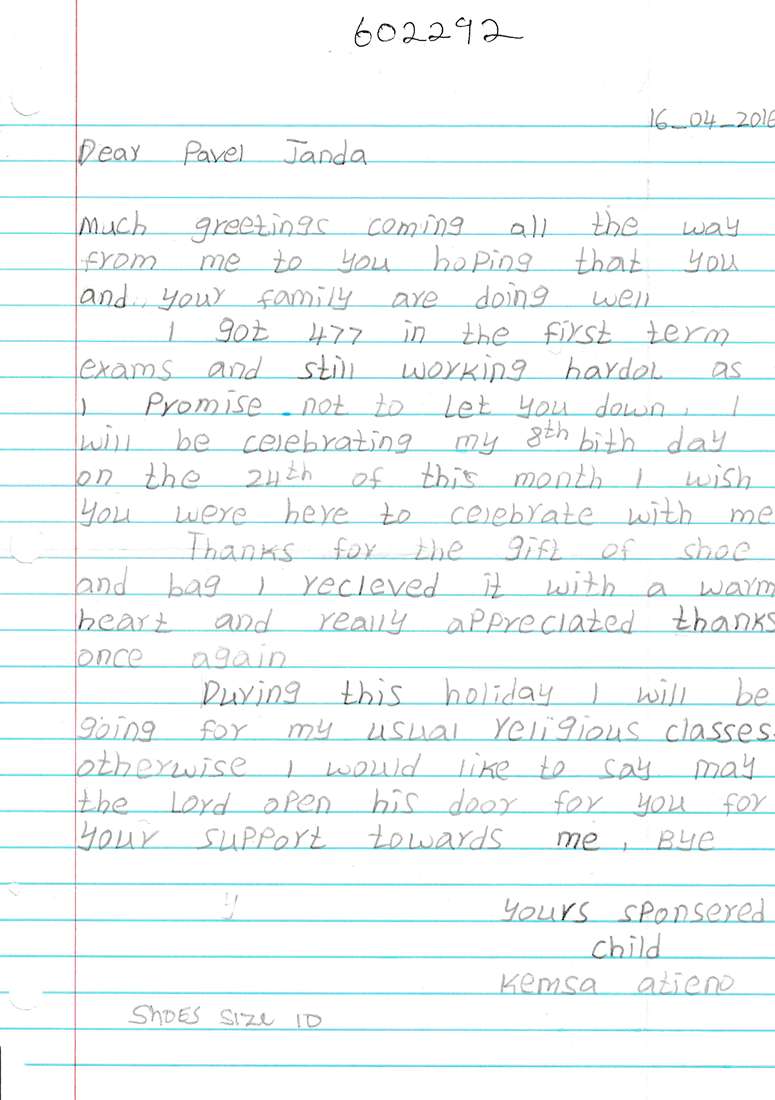 602292
16_04_2016
Dear Pavel Janda
Much greetings coming all the way
from me to you hoping that you
and your family are doing well
I got 477 in the first term
exams and still working hard as
I Promise not to let you down. I
will be celebrating my 8th bith day
on the 24th of this month I wish
you were here to celebrate with me
Thanks for the gift of shoe
and bag I recieved it with a warm
heart and really appreciated thanks
once again
During this holiday I will be
going for my usual religious classes.
otherwise I would like to say may
the Lord open his door for you for
your support towards me, Bye
yours sponsered
child
Kemsa atieno
SHOES SIZE 10